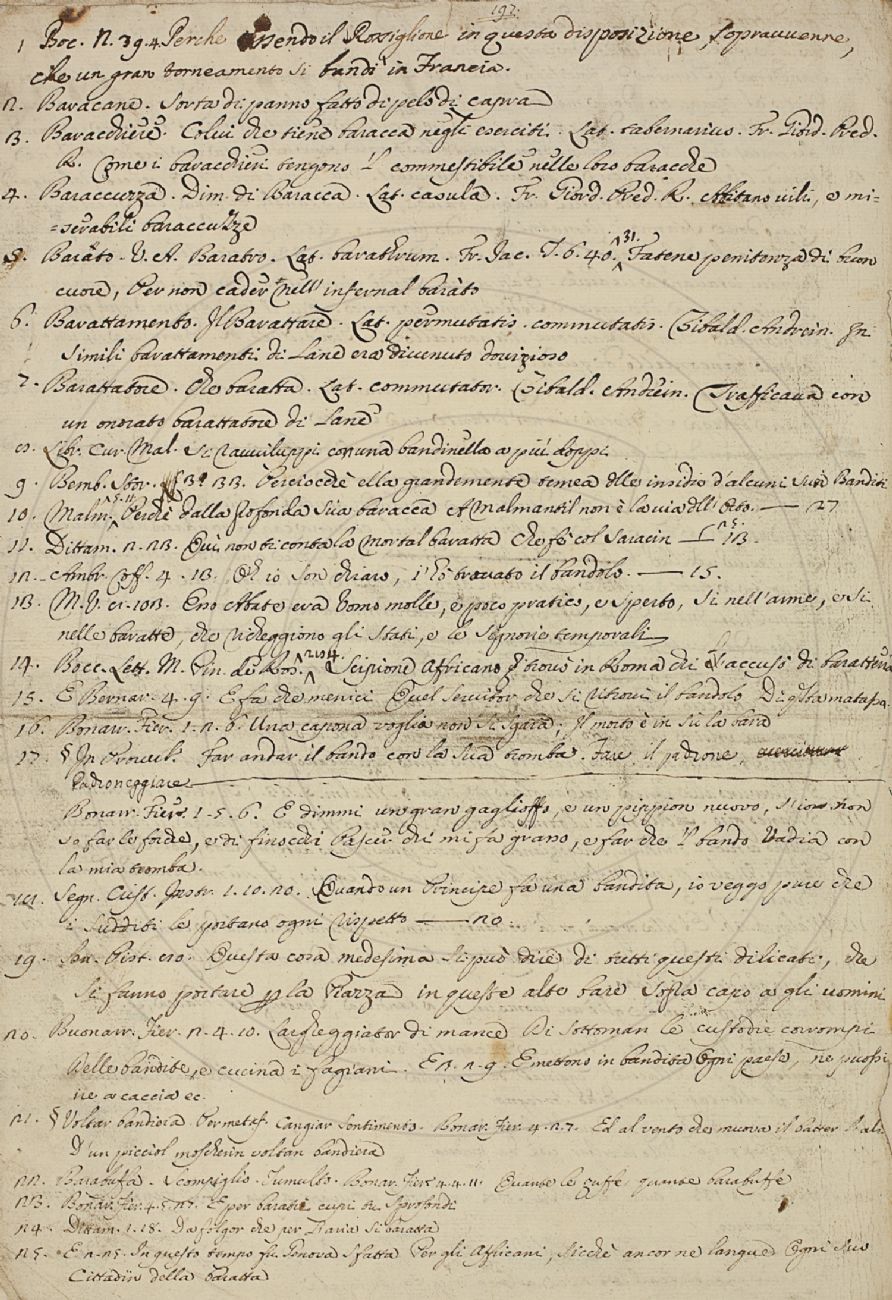 197.
1 Boc. N. 39.4 Perche essendo il Rossiglione in questa disposizione sopravvenne,
che un gran torneamento si bandì in Francia.
2. Baracane. Sorta di panno fatto di pelo di capra
3. Baracchiere. Colui che tiene baracca negli eserciti. Lat. tabernarius. Fr. Giord. Pred.
R. Come i baracchieri tengono il commestibile nelle loro baracche
4. Baraccuzza. Dim. di Baracca. Lat. casula. Fr. Giord. Pred. R. Abitano vili, e mi=
=serabili baraccuzze
5. Baràto. V. A. Baratro. Lat. barathrum. Fr. Jac. T. 6. 40. 31. Fatene penitenza di buon
cuore, Per non cader nell' infernal baràto
6. Barattamento. Il Barattare. Lat. permutatio. commutatio. Tibald. Andrein. In
simili barattamenti di Lane era divenuto dovizioso
7. Barattatore. Che baratta. Lat. commutator. Tibald. Andrein. Trafficava con
un onorato barattatore di Lane
8. Libr. Cur. Mal. Si ravviluppi con una bandinella a più doppi
9. Bemb. Stor. 3. 33. Perciocchè ella grandemente temea delle insidie d'alcuni suoi Banditi
10. Malm. 5. 11. Perchè dalla profonda sua baracca A Malmantil non è la via dell' Orto. — 27
11. Dittam. 2. 23. Qui non ti conto la mortal baratta Che fè col Saracin — 13.
12. Ambr. Cof. 4. 13. Oh io son chiaro, i' hò trovato il bandolo. — 15.
13. M. V. 8. 103. Eno Abate era Uomo molle, e poco pratico, e sperto, sì nell' arme, e sì
nelle baratte, che richeggiono gli stati, e le Signorie temporali
14. Bocc. Lett. M. Pin. de Ros. Scipione Affricano si trovò in Roma chi l'accusò di baratteria
15. E Bernar. 4. 9. E fa che menici Quel servitor che si ritrovi il bandolo Di q̃sta matassa.
16. Bonarr. Fier. 1. 2. 6. Una capona voglia non si sgara; Il morto è in su la bara
17. § In Proverb. Far andar il bando con la sua tromba. Fare il padrone,
Padroneggiare
Bonarr. Fier. 1. 5. 6. E dimmi un gran gaglioffo, e un pippion nuovo, s'io non
so far le forche, e di finocchi Pascer chi mi fa grano, e far che 'l bando Vadia con
la mia tromba.
18. Segn. Crist. Instr. 1. 10. 20. Quando un Principe fa una bandita, io veggo pure che
i sudditi le portano ogni rispetto — 20.
19. Sen. Pist. 80. Questa cosa medesima si può dire di tutti questi dilicati, che
si fanno portare p la Piazza in queste alte bare sopra capo a gli uomini
20. Buonarr. Fier. 2. 4. 10. Largheggiator di mance Di sottoman le custodie corrompi
Delle bandite, e cucina i fagiani. E 2. 2. 9. E mettono in bandita Ogni paese, ne puossi
ire a caccia ec.
21. § Voltar bandiera. Per metaf. Cangiar sentimento. Bonar. Fier. 4. 2. 7. Ed al vento che muova il batter l'ali
D'un picciol moscherin voltan bandiera
22. Barabuffa. Scompiglio. Tumulto. Bonar. Fier. 4. 4. 11. Quante le zuffe, quante barabuffe
23. Bonar. Fier. 4. 5. 27. E per baratri cupi tu sprofondi
24. Dittam. 1. 18. Da folgor che per l'aria si baratta
25. E 2. 25. In questo tempo fu Genova sfatta Per gli Affricani, sicchè ancor ne langue Ogni suo
Cittadin della baratta